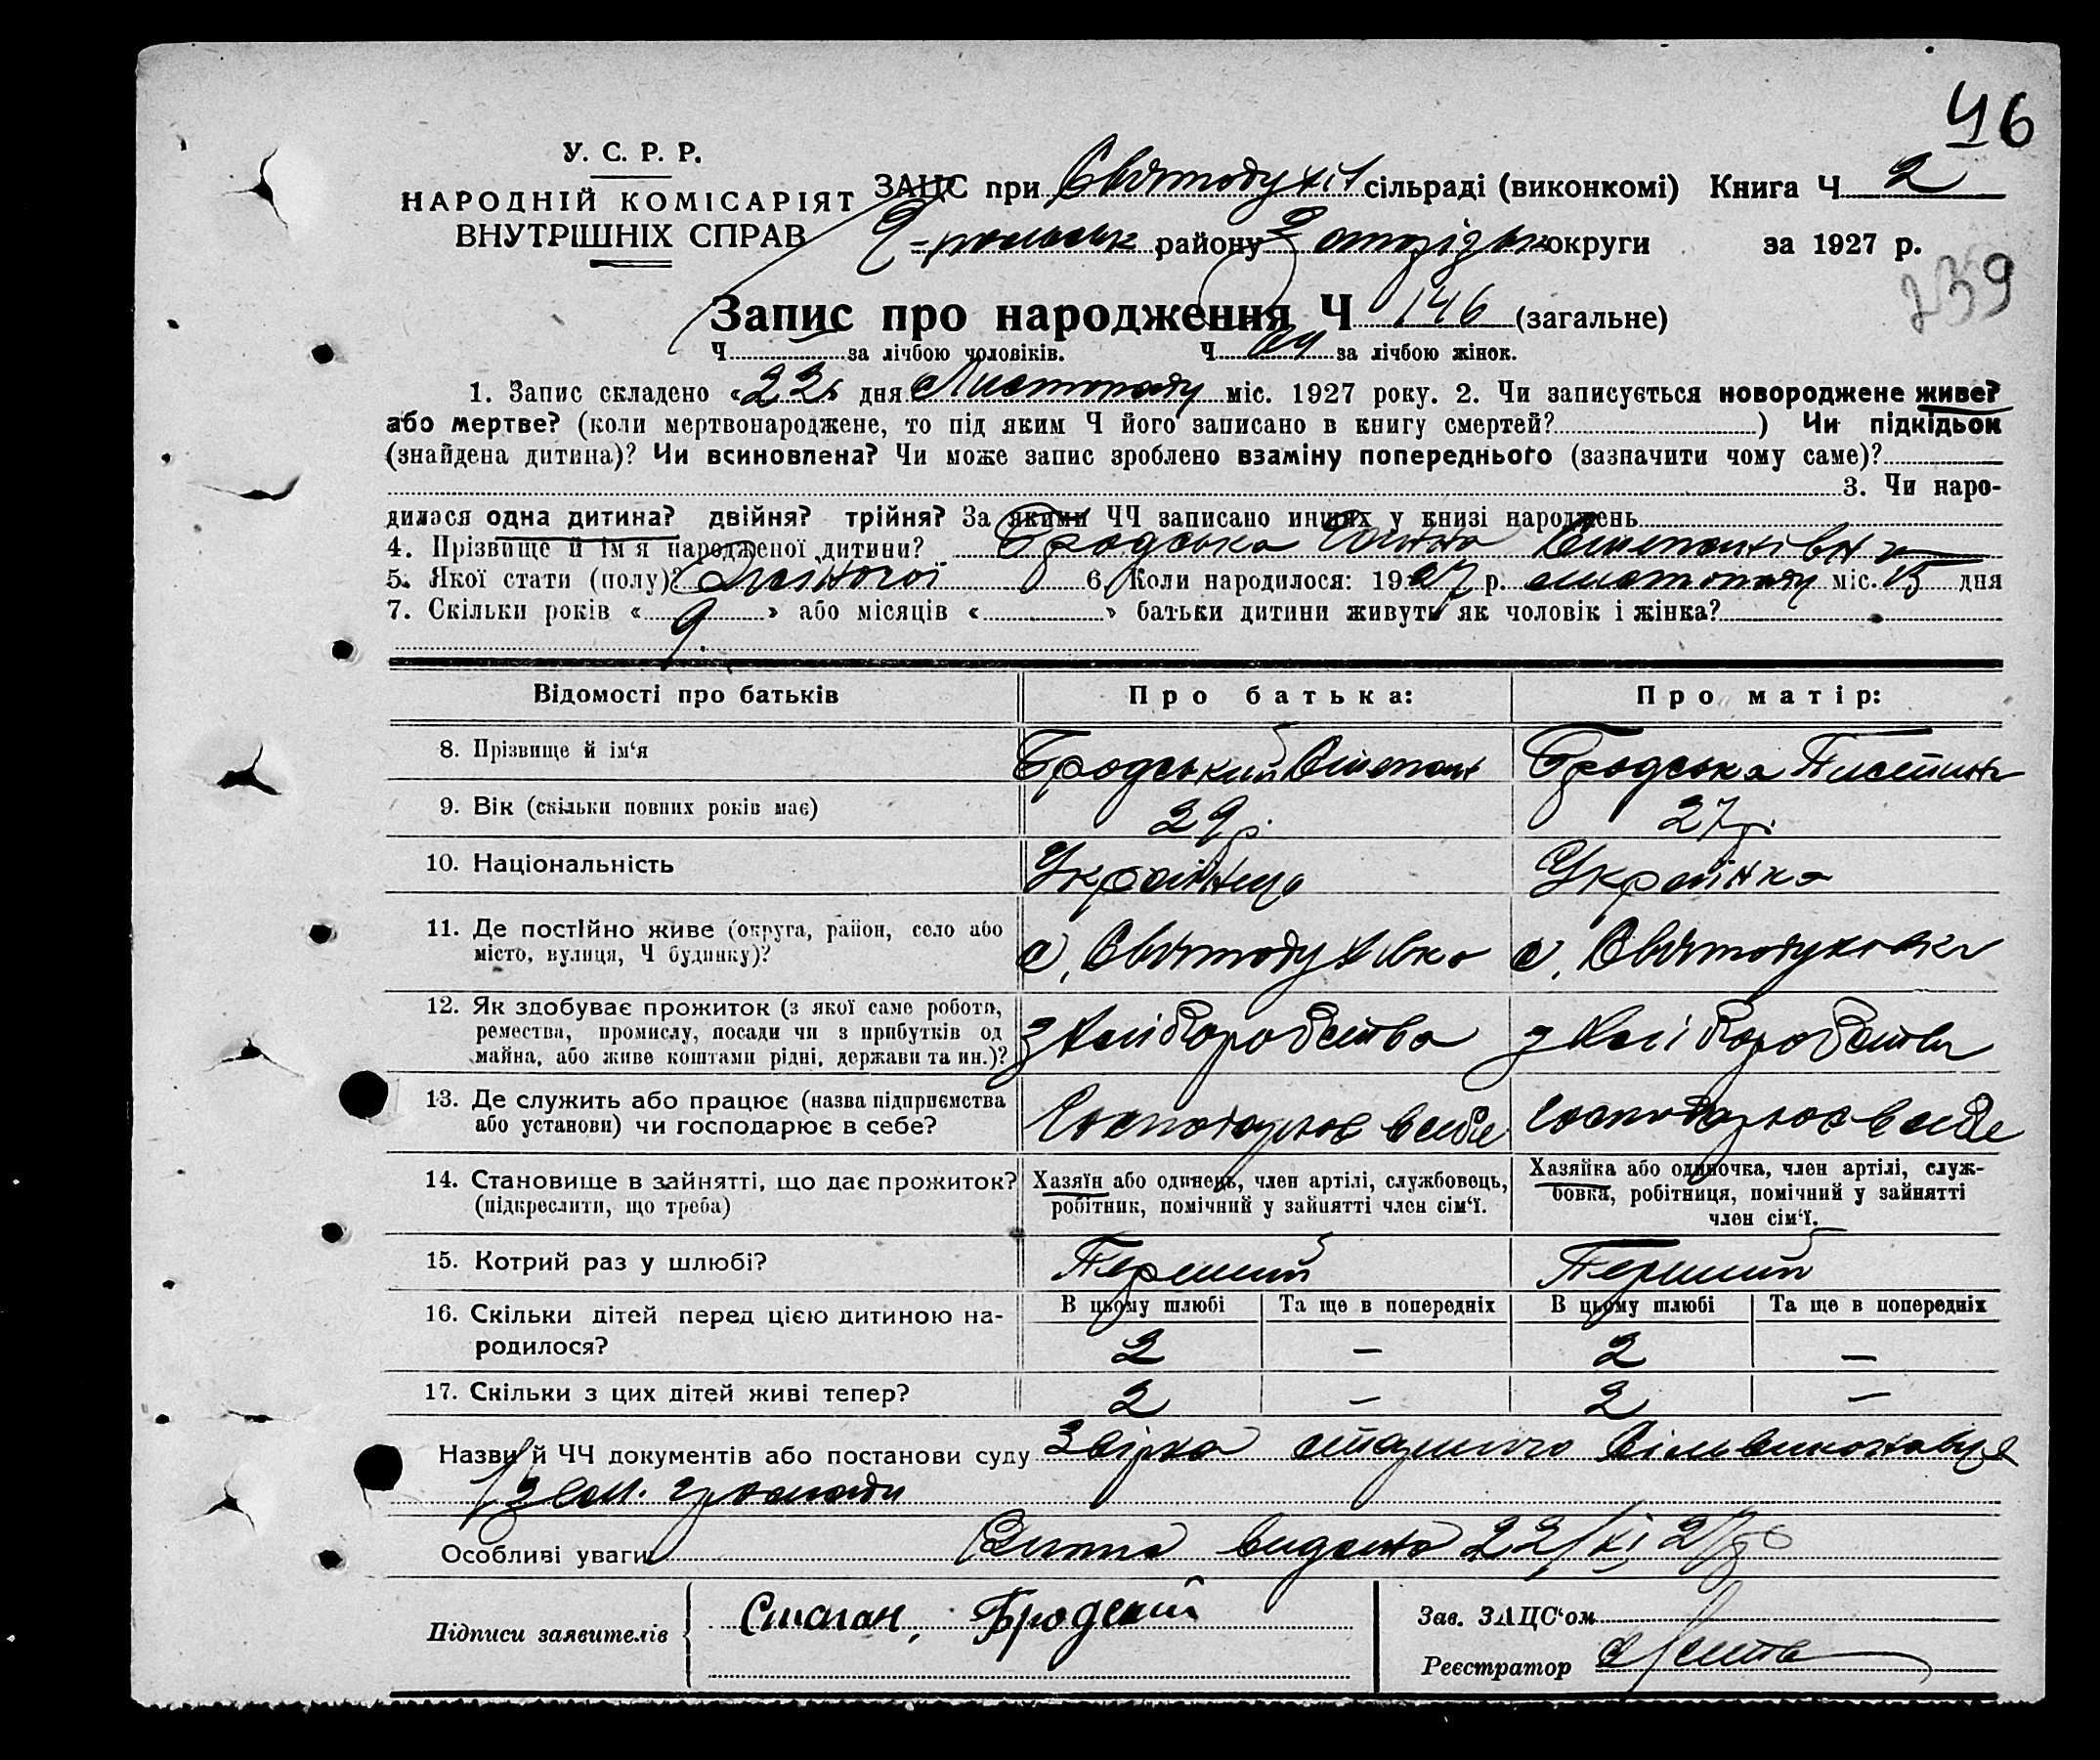 46
У. С. Р. Р.
НАРОДНІЙ КОМІСАРІЯТ
ВНУТРІШНІХ СПРАВ
ЗАЦС при Святодухів сільраді (виконкомі) Книга Ч 2
району округи за 1927 р.
239
Запис про народження Ч 146 (загальне)
Ч за лічбою чоловіків. Ч 69 за лічбою жінок.
1. Запис складено «22» дня Листопаду міс. 1927 року. 2. Чи записується новороджене живе?
або мертве? (коли мертвонароджене, то під яким Ч його записано в книгу смертей? ) Чи підкідьок
(знайдена дитина)? Чи всиновлена? Чи може запис зроблено взаміну попереднього (зазначити чому саме)?
3. Чи наро-
дилася одна дитина? двійня? трійня? За якими ЧЧ записано инших у книзі народжень
4. Прізвище й ім'я народженої дитини? Бродська Ганна Степанівна
5. Якої стати (полу)? Жіночої 6. Коли народилося: 1927 р. листопаду міс. 15 дня
7. Скільки років « 9 » або місяців « » батьки дитини живуть як чоловік і жінка?
Відомості про батьків Про батька: Про матір:
8. Прізвище й ім'я Бродський Степан Бродська Пистина
9. Вік (скільки повних років має) 29 р. 27 р.
10. Національність Українець Українка
11. Де постійно живе (округа, район, село або
місто, вулиця, Ч будинку)? с. Святодухівка с. Святодухівка
12. Як здобуває прожиток (з якої саме роботи,
ремества, промислу, посади чи з прибутків од
майна, або живе коштами рідні, держави та ин.)? з хліборобства з хліборобства
13. Де служить або працює (назва підприємства
або установи) чи господарює в себе? Господарює в себе господарює в себе
14. Становище в зайнятті, що дає прожиток?
(підкреслити, що треба)
Хазяїн або одинець, член артілі, службовець,
робітник, помічний у зайнятті член сім'ї.
Хазяйка або одиночка, член артілі, служ-
бовка, робітниця, помічний у зайнятті
член сім'ї.
15. Котрий раз у шлюбі? Перший Перший
16. Скільки дітей перед цією дитиною на-
родилося?
В цьому шлюбі Та ще в попередніх В цьому шлюбі Та ще в попередніх
2 — 2 —
17. Скільки з цих дітей живі тепер? 2 — 2 —
Назви й ЧЧ документів або постанови суду Звірка старшого сільвиконавця
зем. громади
Особливі уваги Випис видано 22/XI 27 р
Підписи заявителів Степан, Бродский
Зав. ЗАЦС'ом
Реєстратор